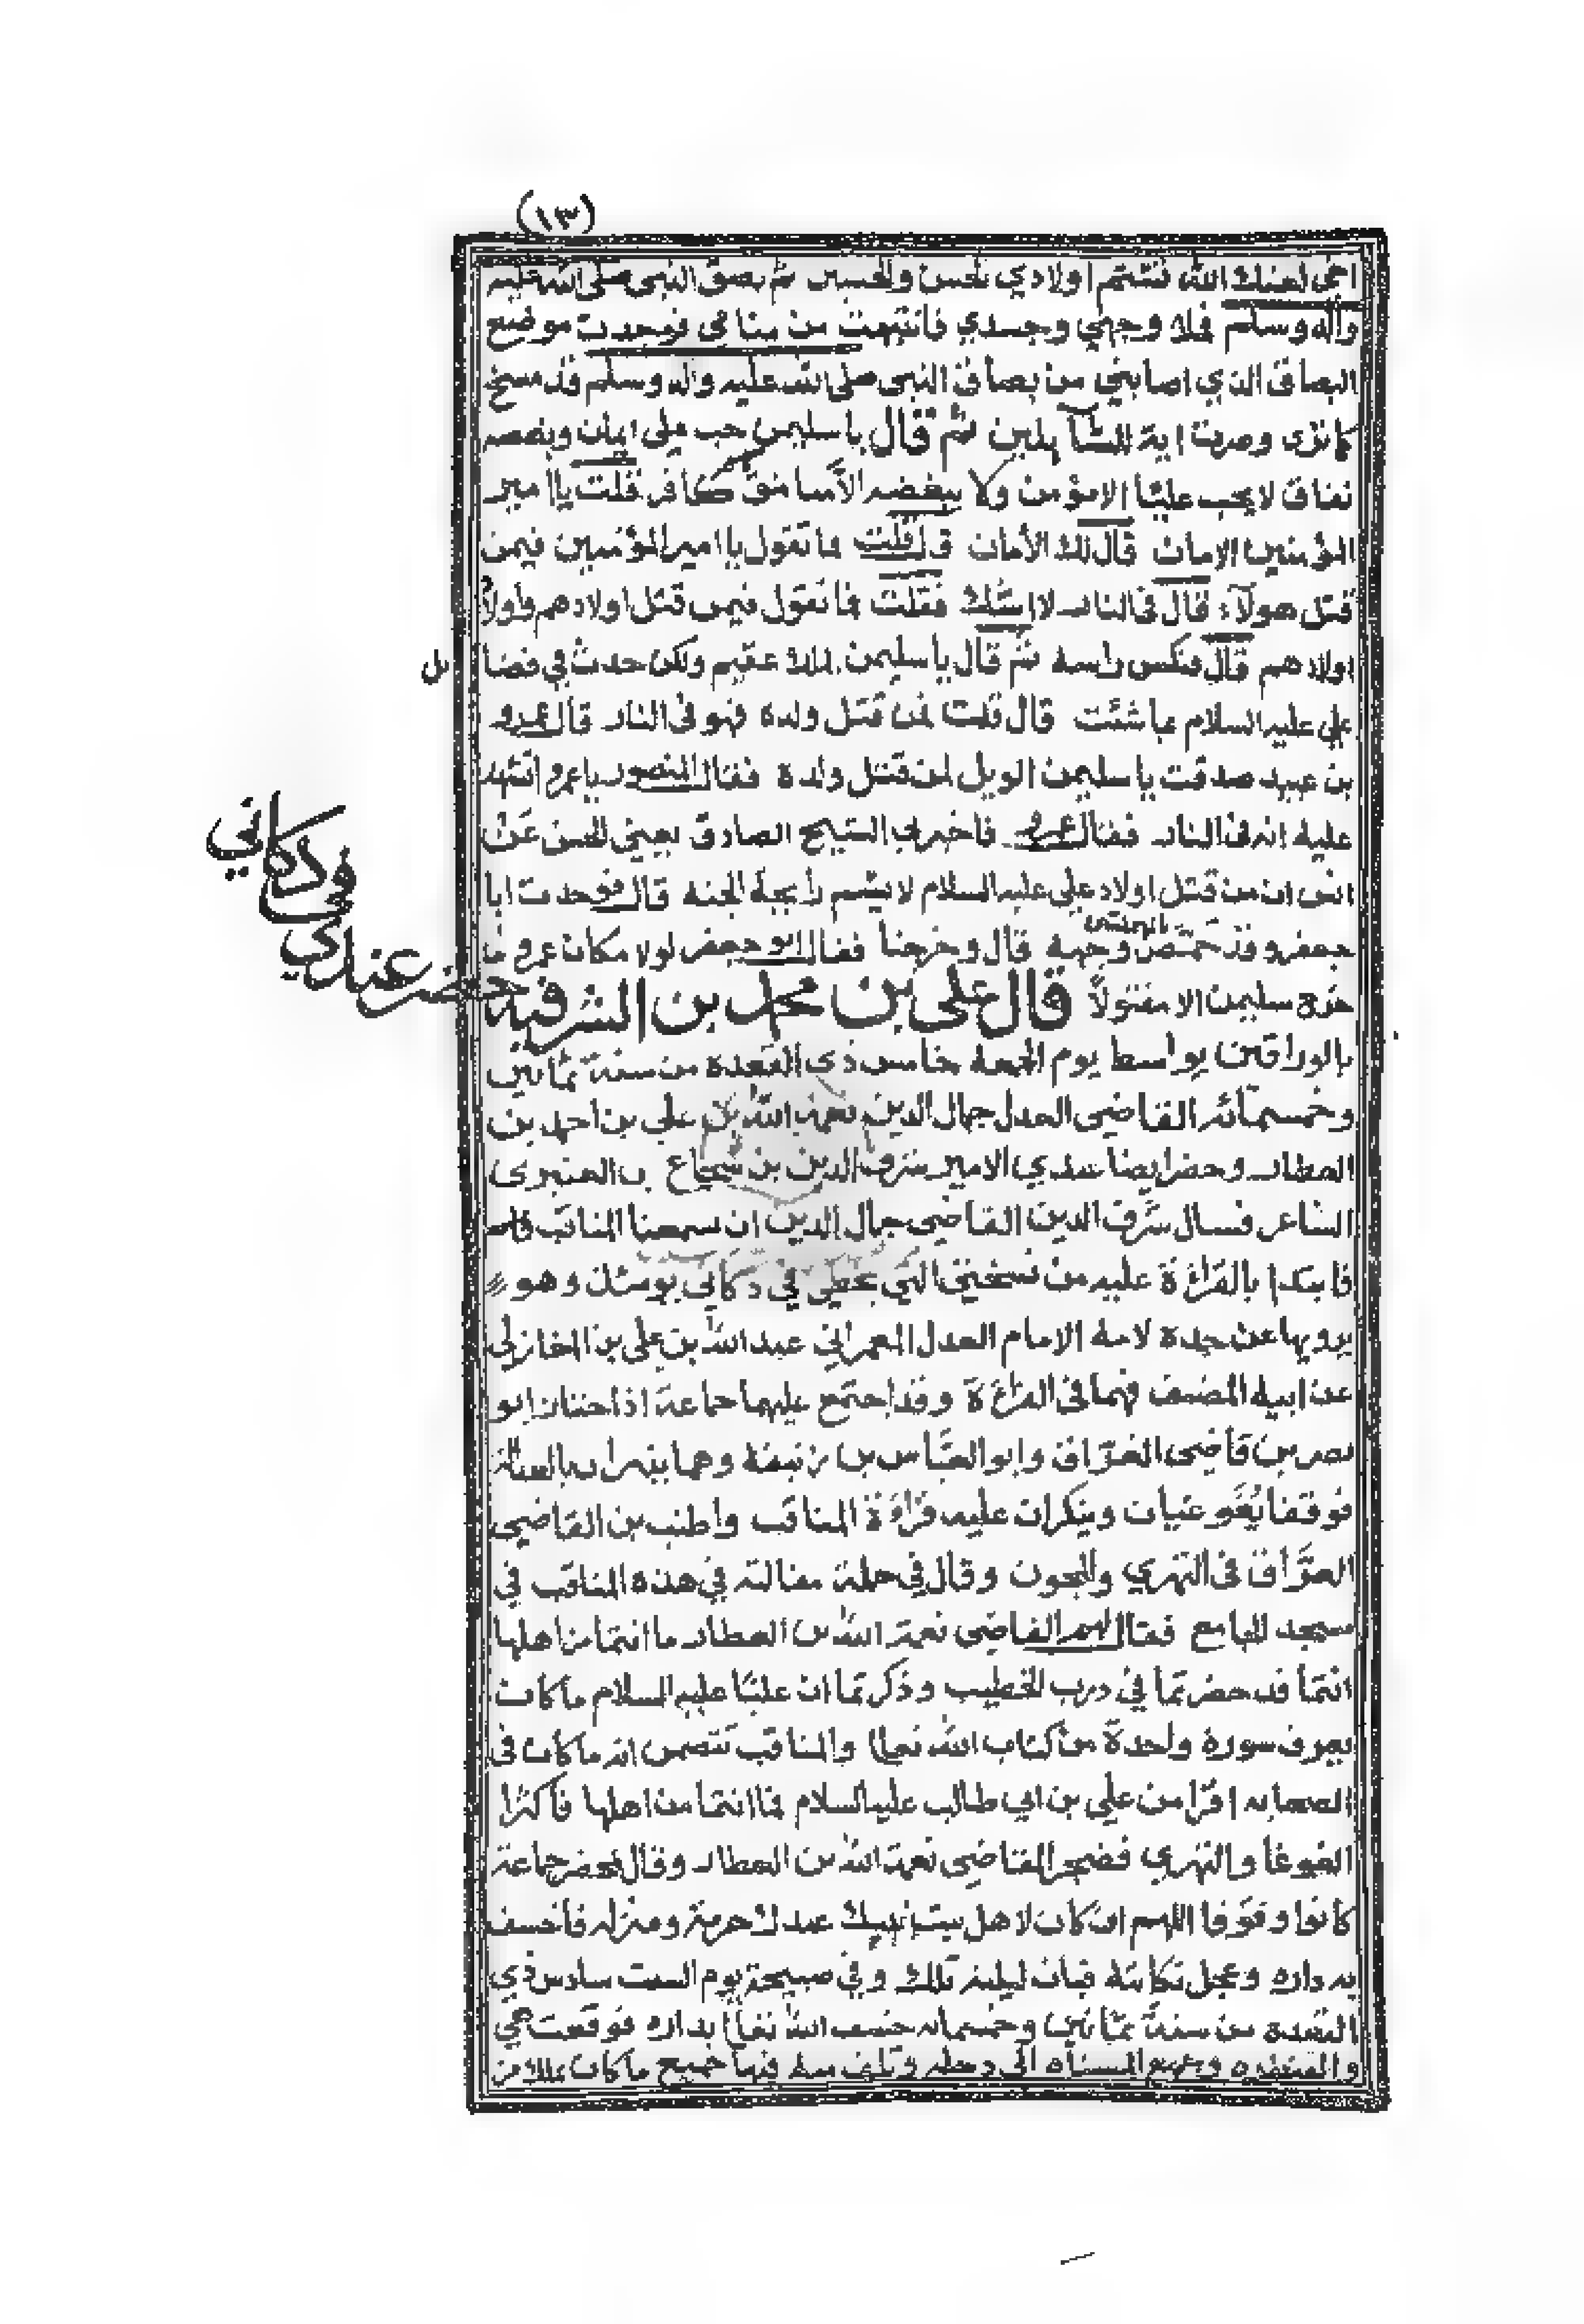 (١٣)
اخي لعنك الله تشتم اولادي الحسن والحسين ثم بصق النبي صلى الله عليه
واله وسلم فملا وجهي وجسدي فانتبهت من منامي فوجدت موضع
البصاق الذي اصابني من بصاق النبي صلى الله عليه واله وسلم قد مسخ
كما ترى وصرت اية السآيلين ثم قال يا سليمن حب علي ايمان وبغضه
نفاق لا يحب عليًا الا مؤمن ولا يبغضه الا منافق كافر قلت يا امير
المؤمنين الامان قال لك الأمان قال قلت فما تقول يا امير المؤمنين فيمن
قتل هولآء قال في النار لا اشك فقلت فما تقول فيمن قتل اولادهم واولاد
اولادهم قال فنكس راسه ثم قال يا سليمن الملك عقيم ولكن حدث في فضا
يل
علي عليه السلام بما شئت قال قلت فمن قتل ولده فهو في النار قال عمرو
بن عبيد صدقت يا سليمن الويل لمن قتل ولده فقال المنصور يا عمرو اتشهد
عليه انه في النار فقال عمرو فاخبرني الشيخ الصادق يعني الحسن عن
انس ان من قتل اولاد علي عليه السلام لا يشم رايحة الجنه قال فوجدت ابا
جعفر وقد حمض وجهه قال وخرجنا فقال ابو جعفر لولا مكان عمرو ما
خرج سليمن الا مقتولاً قال علي بن محمد بن الشرفيه حضر عندي في دكاني
بالوراقين بواسط يوم الجمعة خامس ذي القعدة من سنة ثمانين
وخمسمآئه القاضي العدل جمال الدين نعمة الله بن علي بن احمد بن
العطار وحضر ايضا عندي الامير شرف الدين بن شجاع بن العنبري
الشاعر فسال شرف الدين القاضي جمال الدين ان يسمعنا المناقب
فابتدا بالقراءة عليه من نسختي التي بخطي في دكاني يومئذ وهو
يرويها عن جده لامه الامام العدل المعمر ابي عبد الله بن علي بن المغازلي
عن ابيه المصنف فهما في القراءة وقد اجتمع عليهما جماعة اذ اجتاز ابو
نصر بن قاضي العراق وابو العباس بن زنبقه وهما ينبزان بالعدالة
فوقفا يغوغيان وينكران عليه قراءة المناقب واطنب بن القاضي
العراق في التهزي والمجون وقال في جملة مقالته في هذه المناقب في
مسجد الجامع فقال لهم القاضي نعمة الله بن العطار ما انتما من اهلها
انتما قد حضرتما في درب الخطيب وذكرتما ان عليًا عليه السلام ما كان
يعرف سورة واحدة من كتاب الله تعالى والمناقب تتضمن انه ما كان في
الصحابه اقرا من علي بن ابي طالب عليه السلام فما انتما من اهلها فاكثرا
الغوغا والتهزي فضجر القاضي نعمة الله بن العطار وقال بمحضر جماعة
كانوا وقوفا اللهم ان كان لاهل بيت نبيك عندك حرمة ومنزله فاخسف
به داره وعجل نكايته فبات ليلته تلك وفي صبيحة يوم السبت سادس ذي
القعدة من سنة ثمانين وخمسمائه خسف الله تعالى بداره فوقعت هي
والقنطره وجميع المسناه الى دجله وتلف منه فيها جميع ما كان يملك من